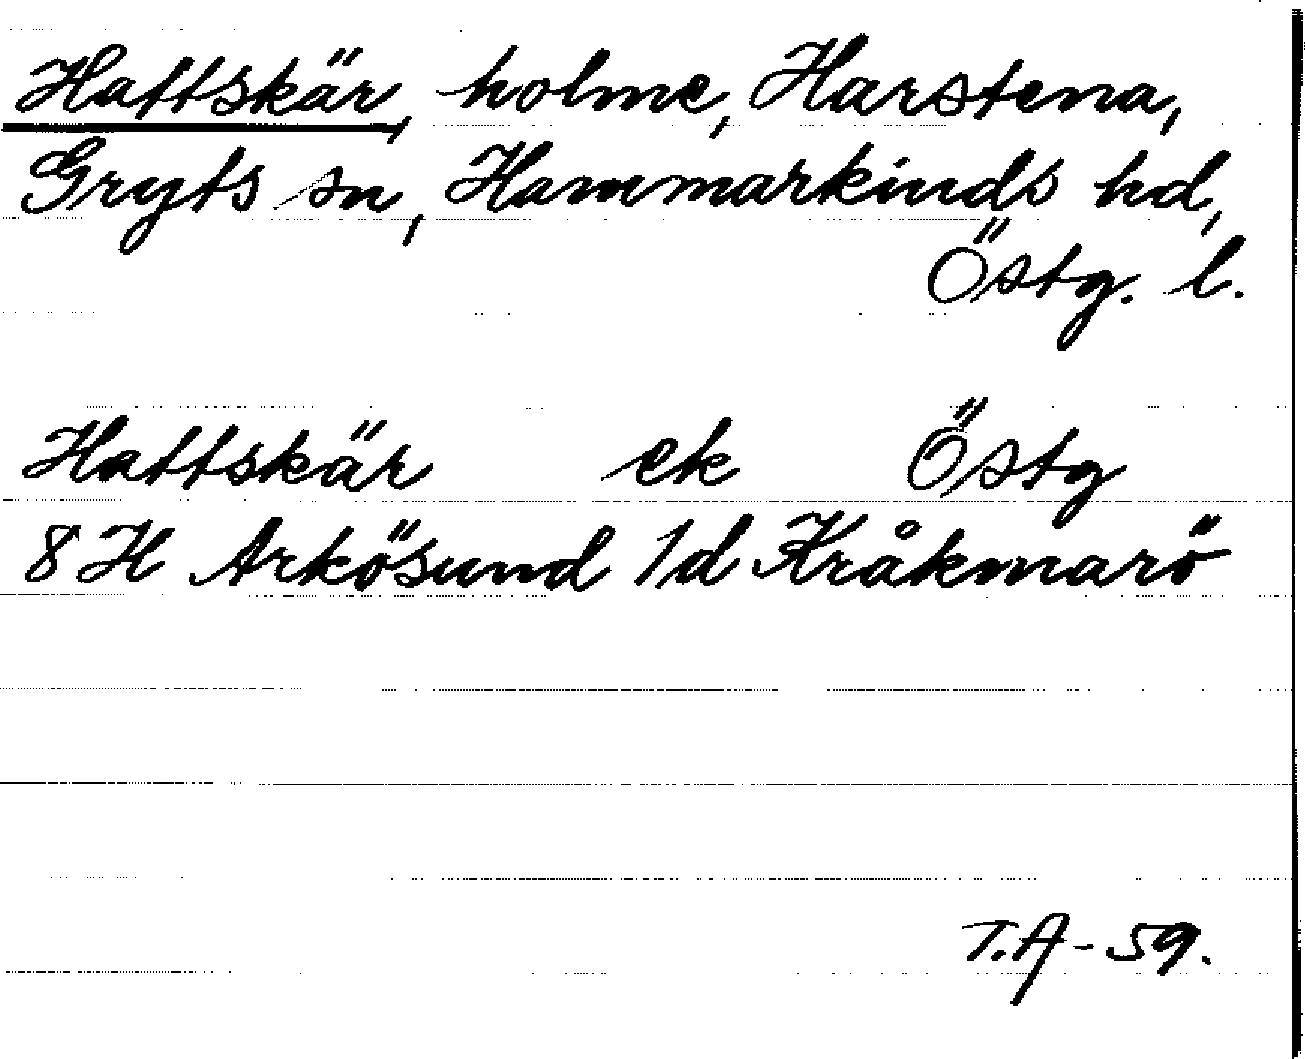 Hattskär, holme, Harstena,
Gryts sn, Hammarkinds hd,
Östg. l.
Hattskär ek Östg
8 H Arkösund 1d Kråkmarö
T.A - 59.